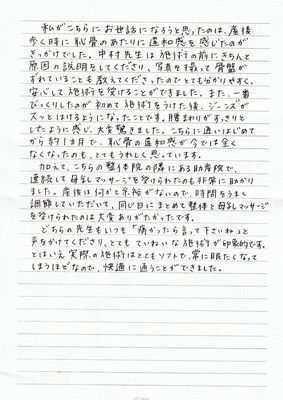 私がこちらにお世話になろうと思ったのは、産後
歩く時に恥骨のあたりに違和感を感じたのが
きっかけでした。中村先生は施術の前にきちんと
原因の説明をしてくださり、写真を撮って骨盤が
ずれていることも教えてくださったのでとても分かりやすく、
安心して施術を受けることができました。また、一番
びっくりしたのが初めて施術をうけた後、ジーンズが
スッとはけるようになったことです。腰まわりがすっきりと
したように感じ、大変驚きました。こちらに通いはじめて
から約1ヵ月で、恥骨の違和感が今では全く
なくなったのも、とてもうれしく思っています。
加えて、こちらの整体院の隣にある助産院で、
連続して母乳マッサージを受けられたのも非常に助かり
ました。産後は何かと余裕がないので、時間をうまく
調節していただいて、同じ日にまとめて整体と母乳マッサージ
を受けられたのは大変ありがたかったです。
どちらの先生もいつも「痛かったら言って下さいね」と
声をかけてくださり、とてもていねいな施術が印象的です。
とはいえ実際の施術はとてもソフトで、常に眠たくなって
しまうほどなので、快適に通うことができました。